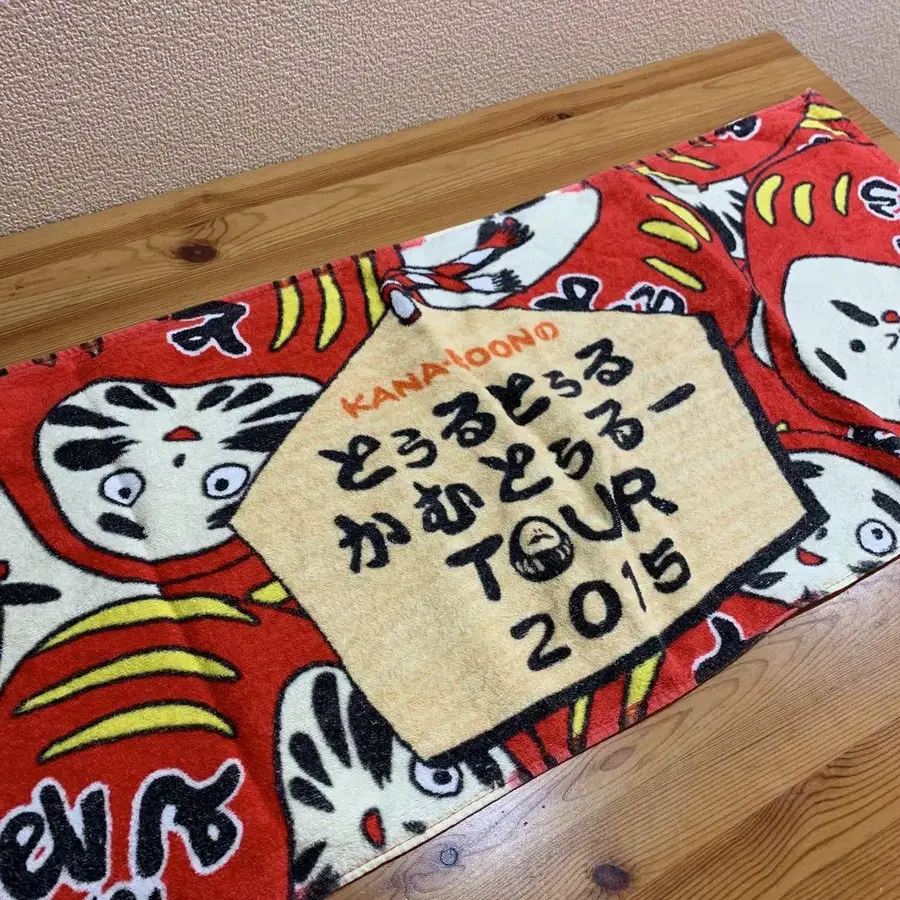 KANA-BOONの
とぅるとぅる
かむとぅるー
TOUR
2015